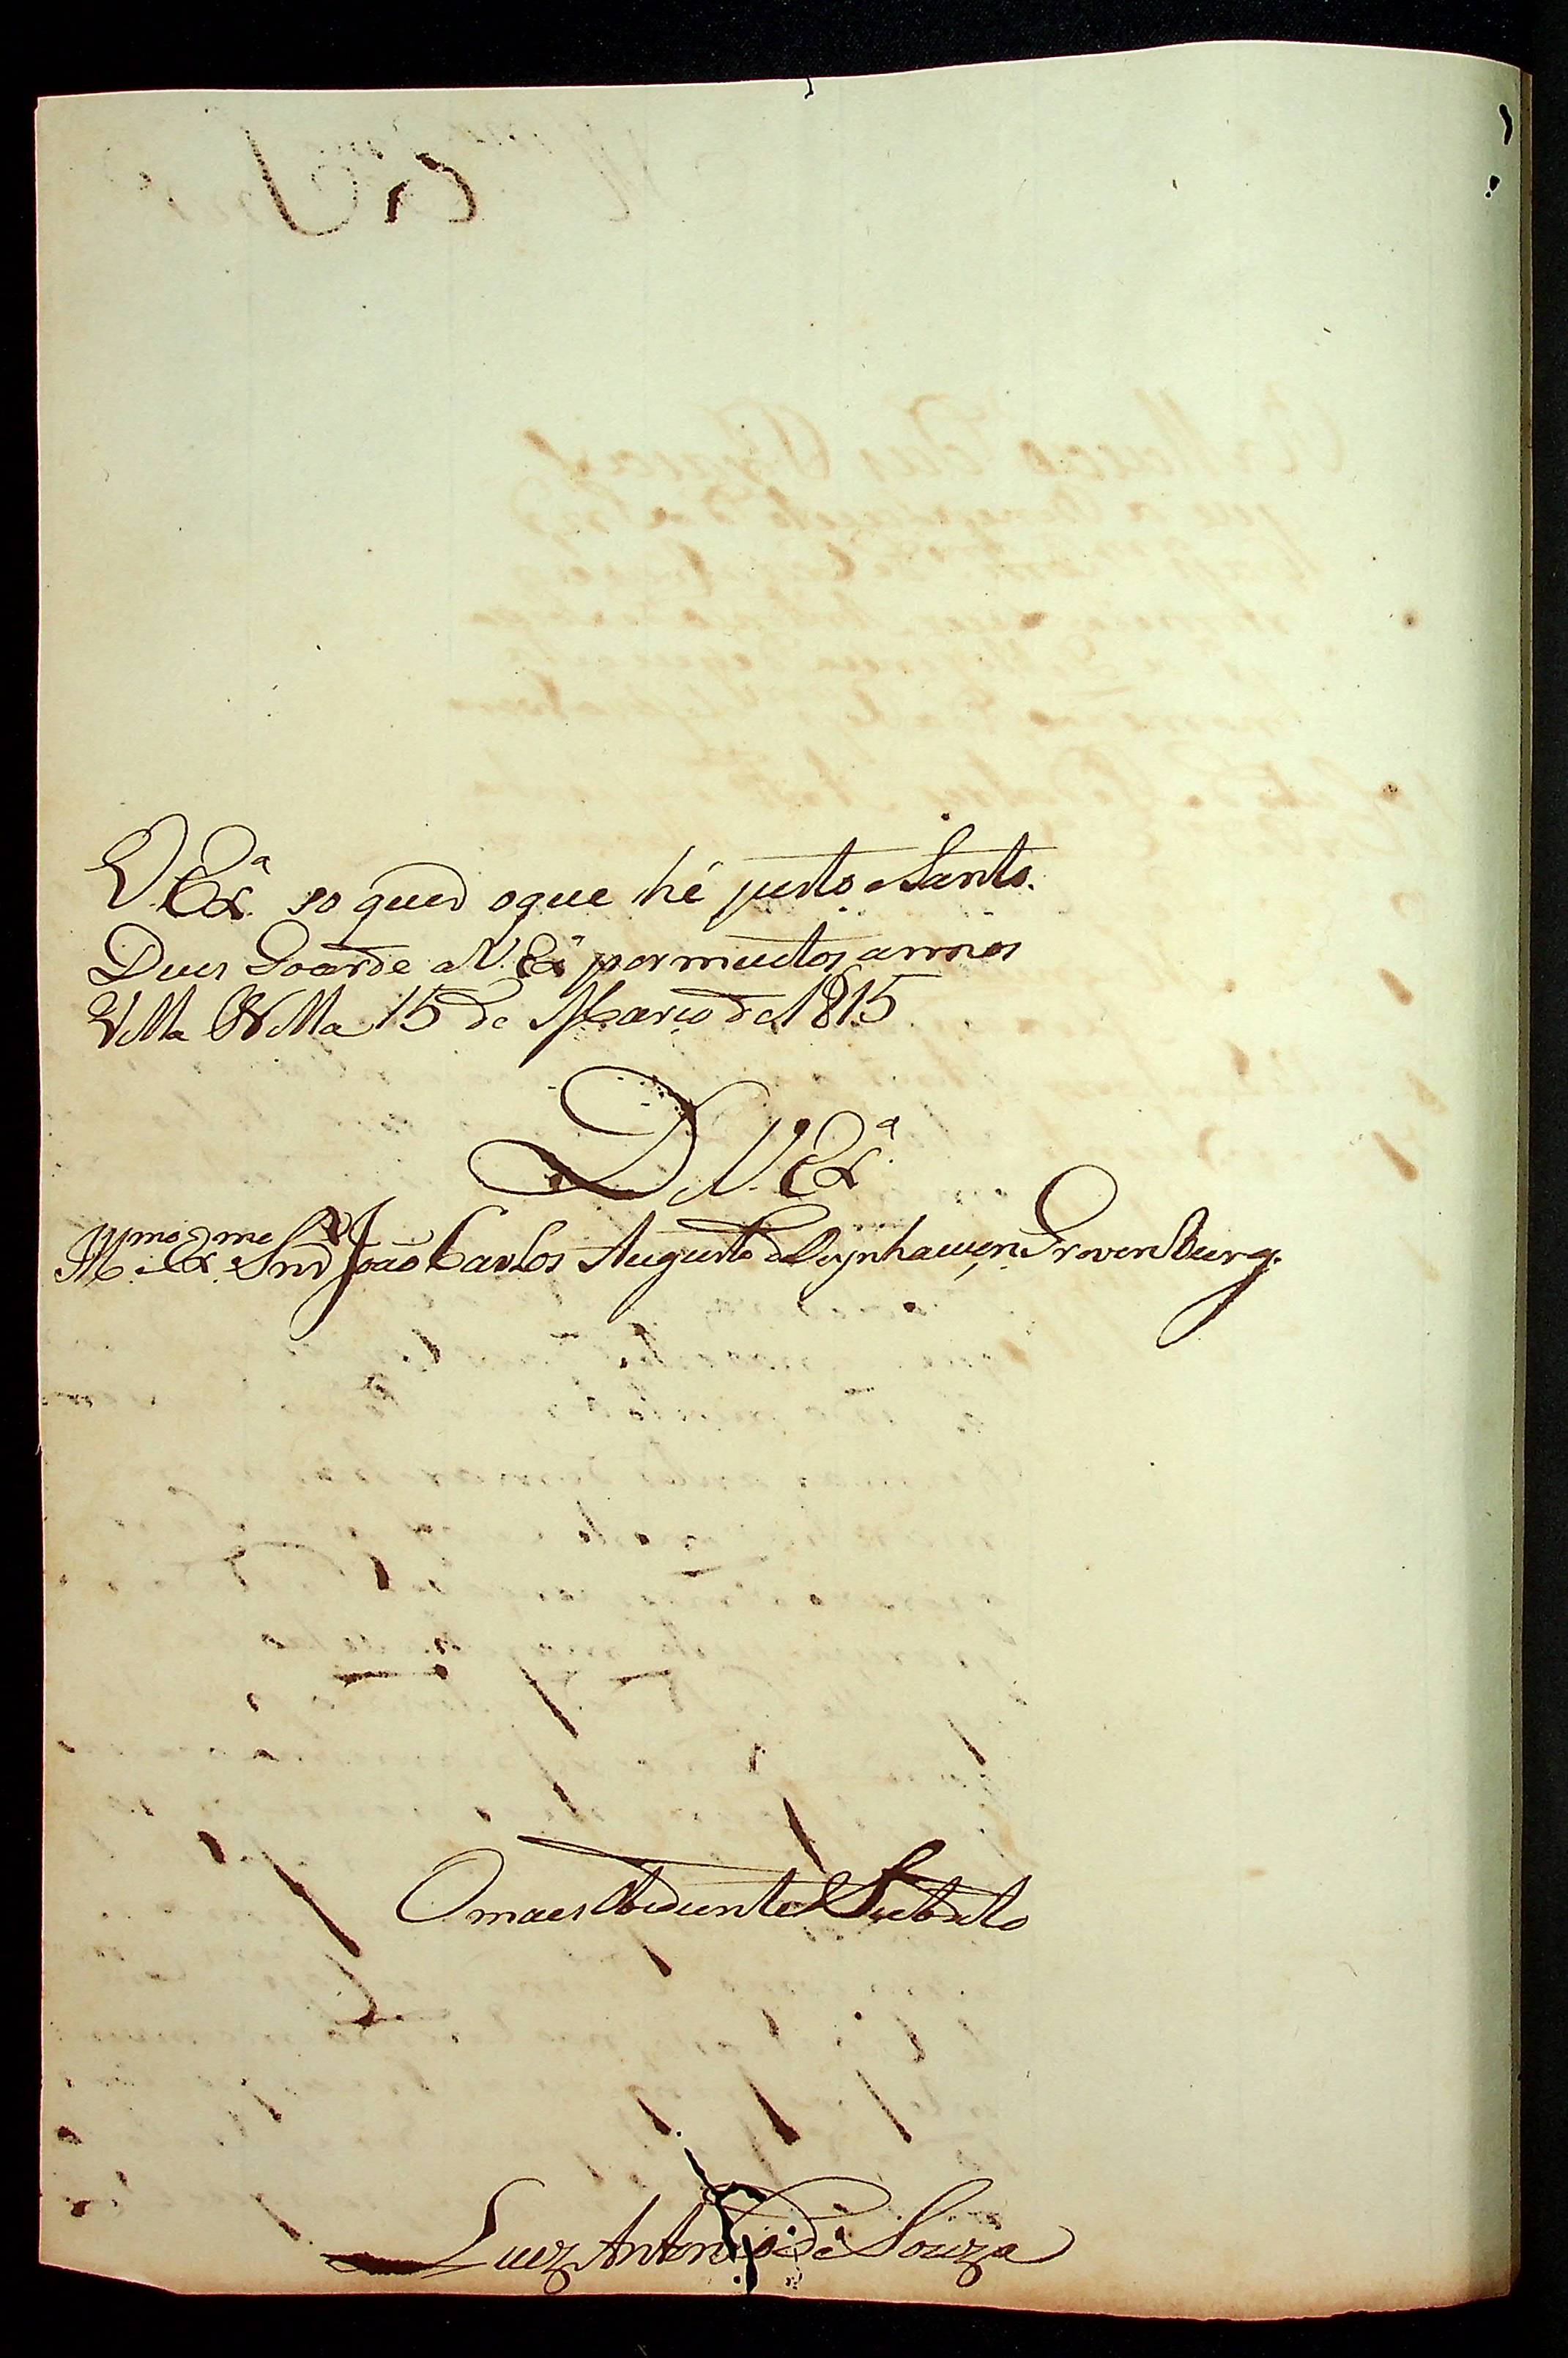 V. Exª. so quer oque hé justo e Santo.
Deus Goarde a V. Exª por muitos annos
Villa Bella 15 de Março de 1815
De V. Exª.
Illmo. e Exmo. Snr João Carlos Augusto de Oeynhausen Grevenburg.
O mais Obediente Subdito
Luiz Antonio de Souza